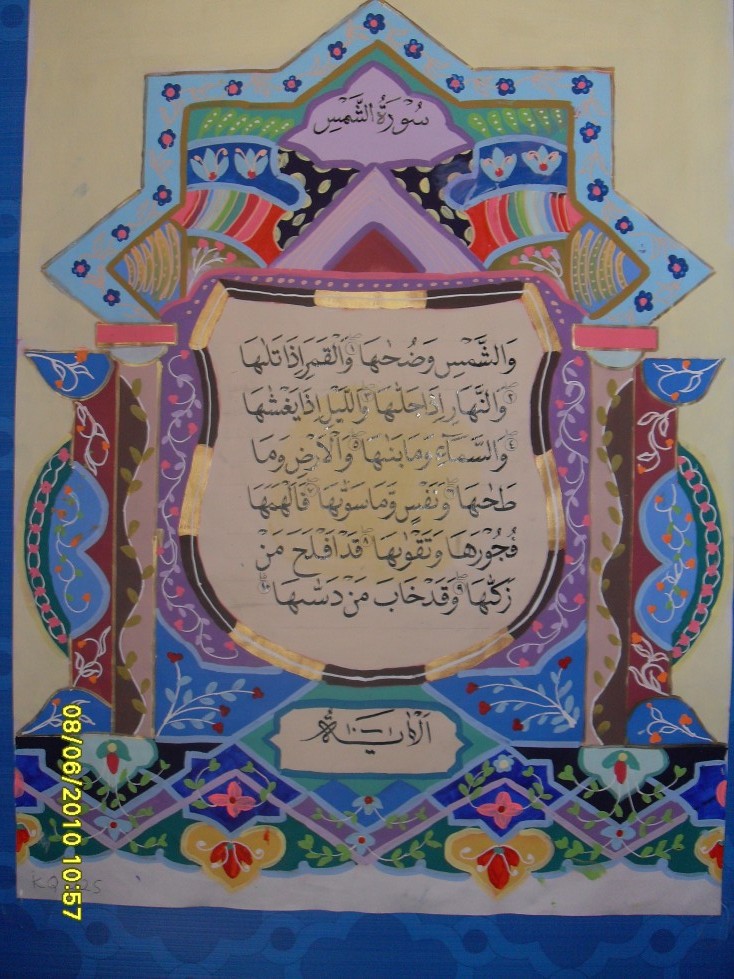 سُوْرَةُ الشَّمْسِ
وَالشَّمْسِ وَضُحٰىهَا ۝١ وَالْقَمَرِ إِذَا تَلٰىهَا
۝٢ وَالنَّهَارِ إِذَا جَلّٰىهَا ۝٣ وَالَّيْلِ إِذَا يَغْشٰىهَا
۝٤ وَالسَّمَآءِ وَمَا بَنٰىهَا ۝٥ وَالْأَرْضِ وَمَا
طَحٰىهَا ۝٦ وَنَفْسٍ وَّمَا سَوّٰىهَا ۝٧ فَأَلْهَمَهَا
فُجُوْرَهَا وَتَقْوٰىهَا ۝٨ قَدْ أَفْلَحَ مَنْ
زَكّٰىهَا ۝٩ وَقَدْ خَابَ مَنْ دَسّٰىهَا ۝١٠
الاية ١ – ١٠
08/06/2010 10:57